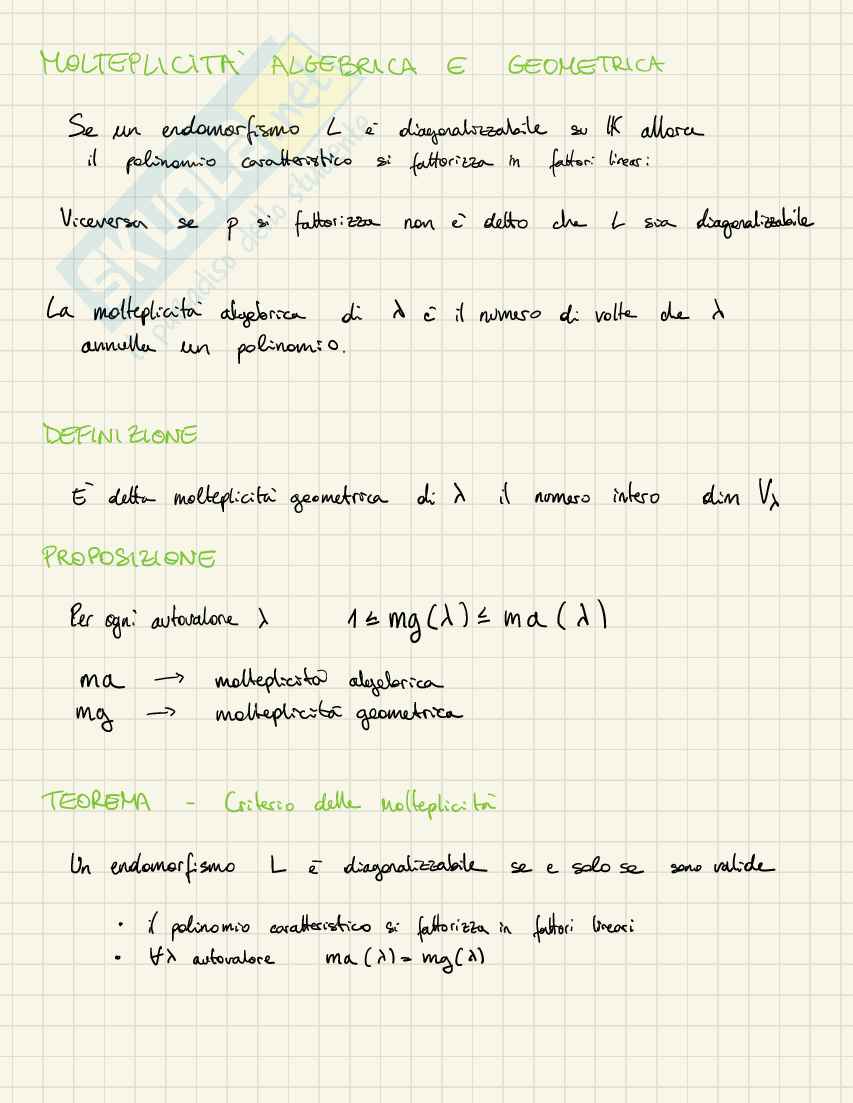 MOLTEPLICITA' ALGEBRICA E GEOMETRICA
Se un endomorfismo L è diagonalizzabile su K allora
il polinomio caratteristico si fattorizza in fattori lineari
Viceversa se p si fattorizza non è detto che L sia diagonalizzabile
La molteplicità algebrica di λ è il numero di volte che λ
annulla un polinomio.
DEFINIZIONE
E' detta molteplicità geometrica di λ il numero intero dim Vλ
PROPOSIZIONE
Per ogni autovalore λ 1 ≤ mg(λ) ≤ ma(λ)
ma → molteplicità algebrica
mg → molteplicità geometrica
TEOREMA - Criterio delle molteplicità
Un endomorfismo L è diagonalizzabile se e solo se sono valide
• il polinomio caratteristico si fattorizza in fattori lineari
• ∀λ autovalore ma(λ) = mg(λ)
SKUOLA.net
il paradiso dello studente